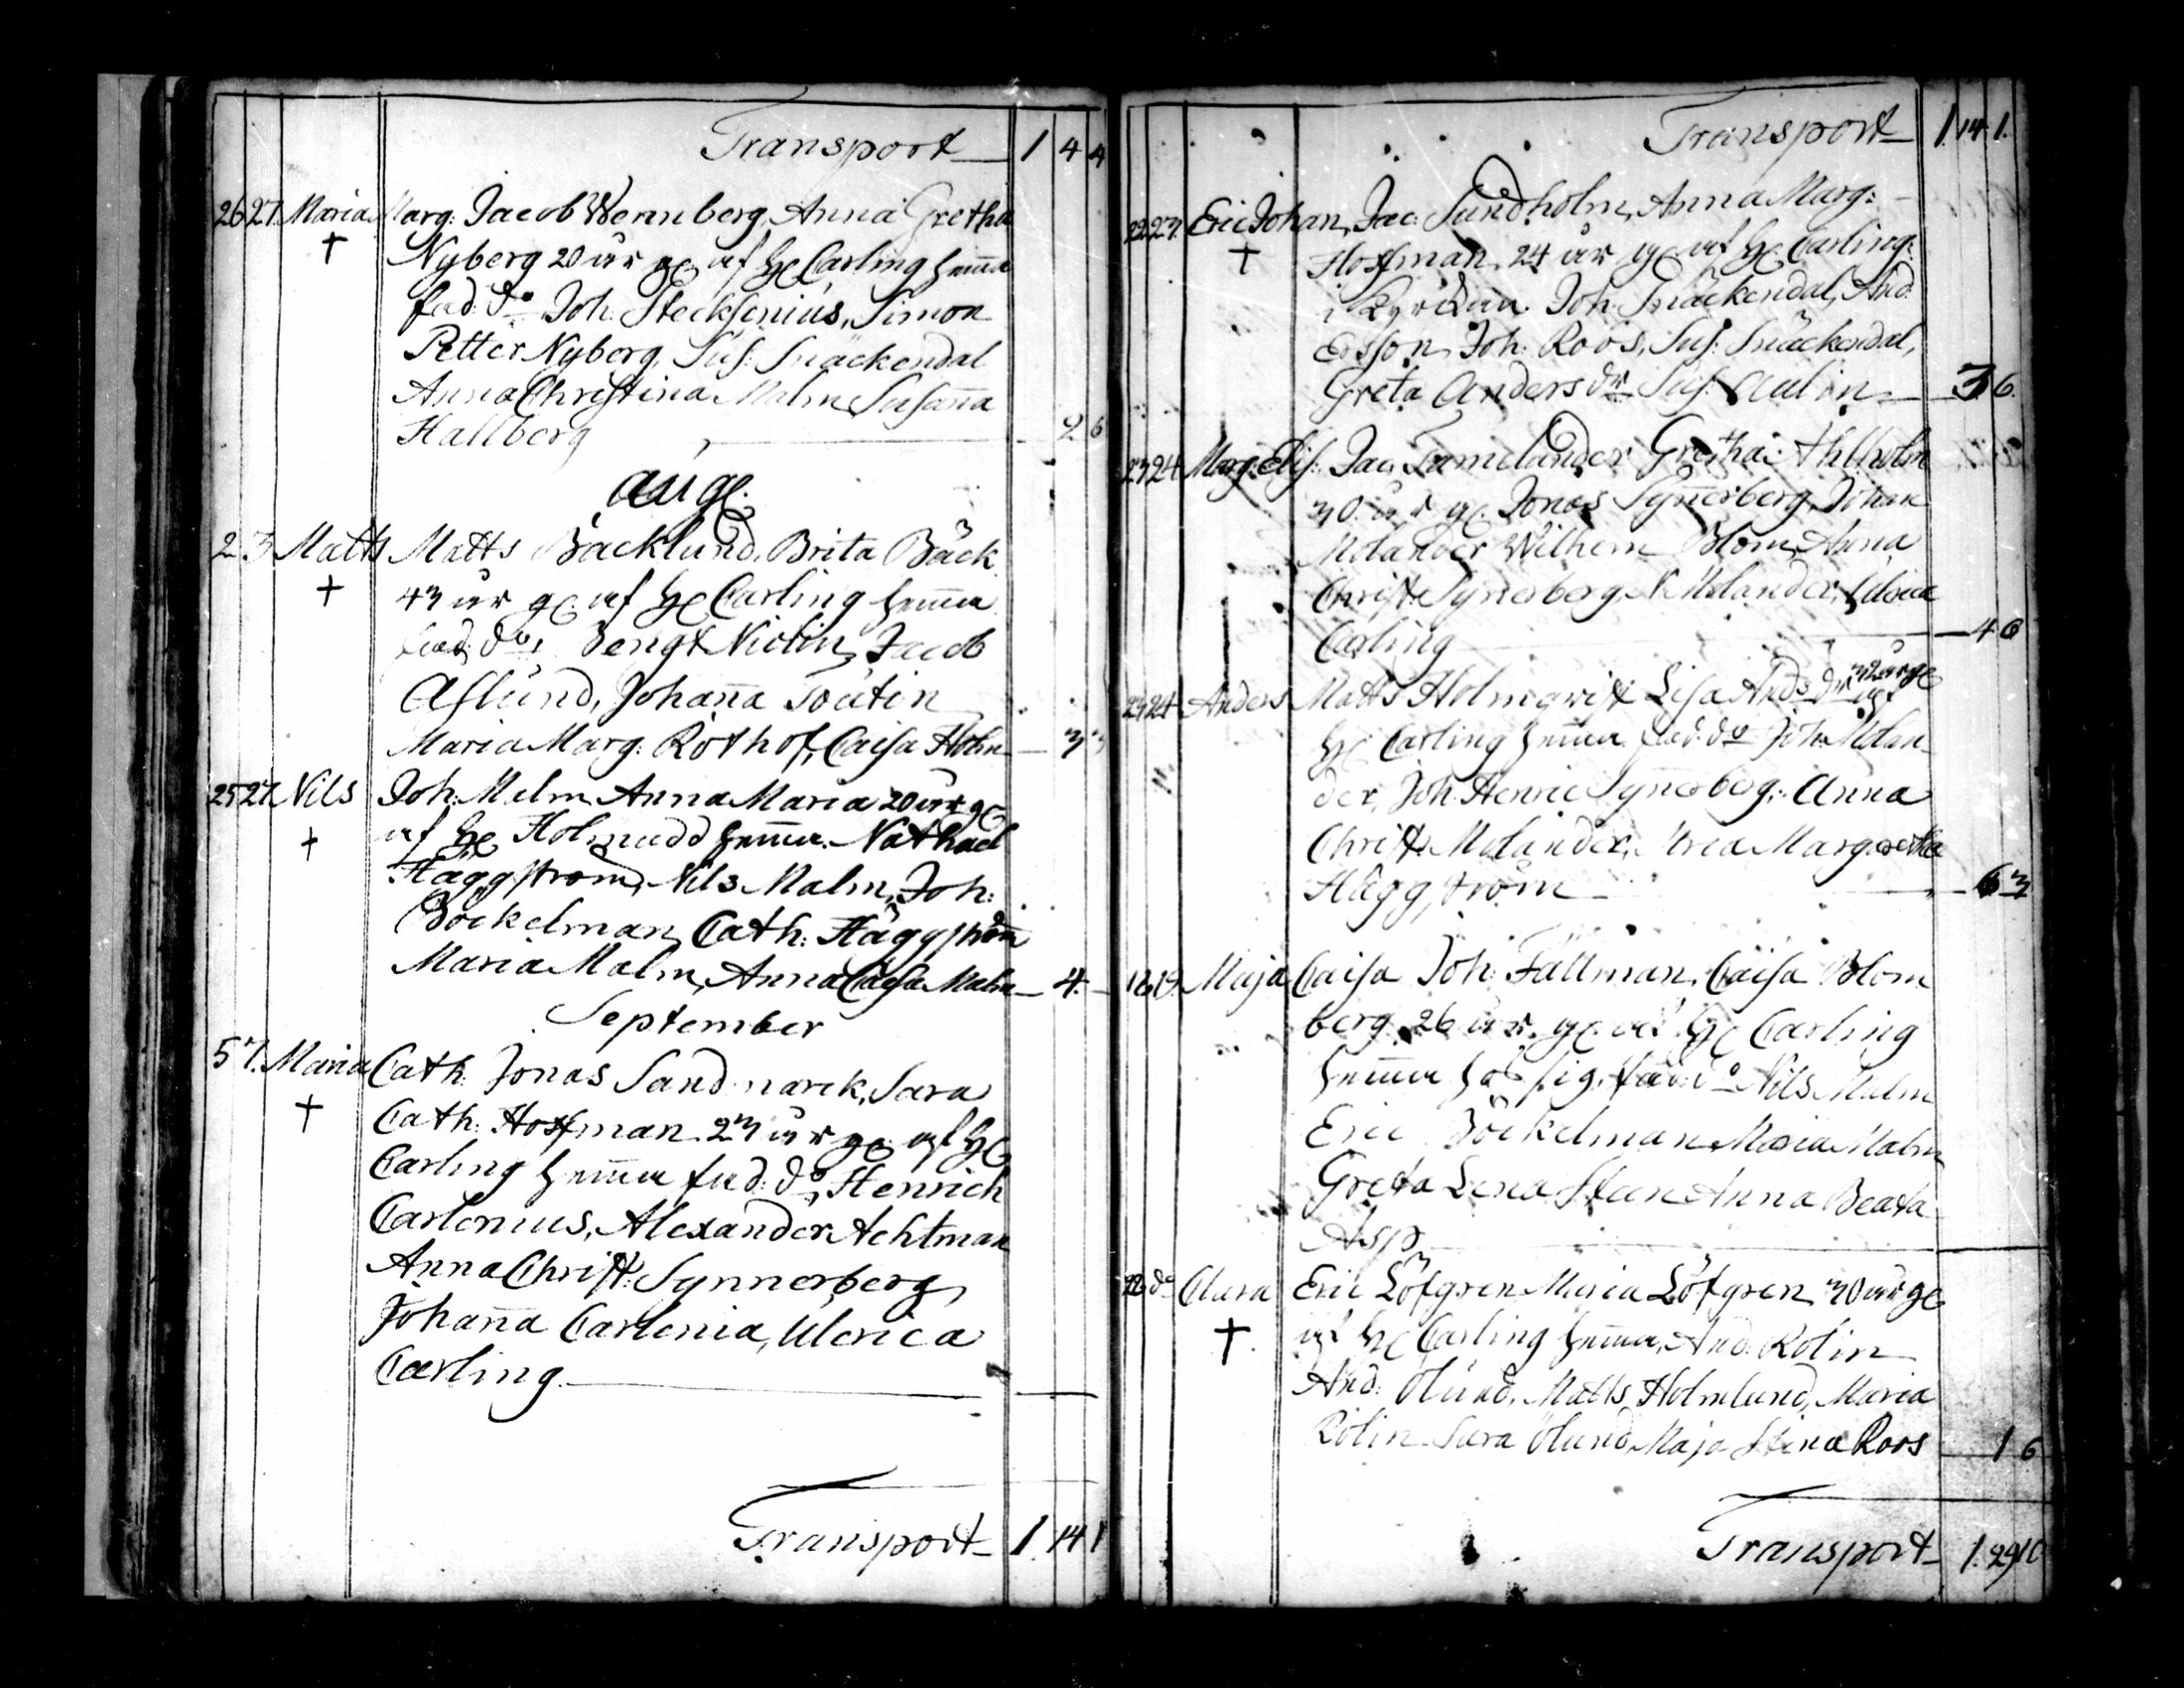 Transport 1 4 4
26 27 Maria Marg: Jacob Wennberg, Anna Gretha
† Nyberg 20 år ge. af he Carling hemma
fad: do Joh: Stecksenius, Simon
Petter Nyberg, Sus: Snäckendal
Anna Christina Malm, Susaña
Hallberg 2 6
aug:
2 3 Matts Matts Bäcklund, Brita Bäck
† 43 år ge. af he Carling hemma
fad: do, Bengt Niclin, Jacob
Aslund, Johaña Toutin
Maria Marg: Rothof, Caisa Holm 3 3
25 27 Nils Joh: Malm Anna Maria 20 år ge
† af he Holmudd hemma. Nathael
Häggström, Nils Malm, Joh:
Böckelman, Cath: Häggström
Maria Malm, Anna Caisa Malm 4.
September
5 7. Maria Cath: Jonas Sandmarck, Sara
† Cath: Hoffman 23 år ge. af he
Carling hemma fad: do, Henrich
Carlenius, Alexander Achtman
Anna Christ: Synnerberg
Johaña Carlenia, Ulerica
Carling
Transport 1. 14 1
Transport 1. 14. 1.
22 23. Eric Johan, Jac: Sundholm, Anna Marg:
† Hoffman 24 år ge. af he Carling
i Joh: Snäckendal, And:
Ersson, Joh: Roos, Sus: Snäckendal,
Greta Anders dr Sus: Aulin 3 6.
23 24 Marg: Elis: Jac: Tamelander Gretha Ahlholm
30 år ge. Jonas Syñerberg, Johan
Molander Wilhem Blom, Anna
Christ: Synerberg, Molander, Ulrica
Carling 4 6
23 24 Anders Matts Holmqvist Lisa Ands dr 32 år ge af
he Carling hemma fad: do Joh: Molan
der, Joh: Henric Synerberg, Anna
Christ: Molander, Margaretha
Häggström 6 3
Maja Caisa Joh: Fällman, Caisa Blom
berg 26 år. ge. af he Carling
hemma hos sig. fad: do Nils Malm
Eric Böckelman Maria Malm
Greta Lena Steen Anna Beata
Asp
do Clara Eric Löfgren Maria Löfgren 30 år ge
† af he Carling hemma, And: Rolin
And: Ölund, Matts Holmlund, Maria
Rolin Sara Ölund, Maja Stina Roos 1 6
Transport 1. 29 10